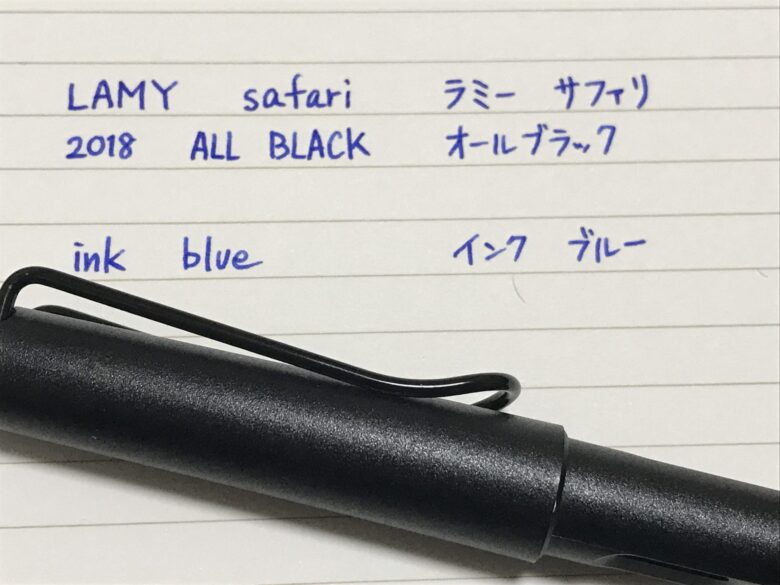 LAMY safari ラミー サファリ
2018 ALL BLACK オールブラック
ink blue インク ブルー